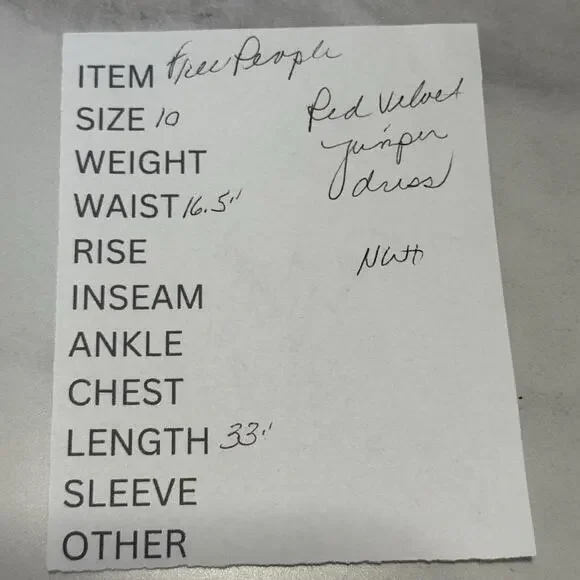 ITEM Free People
SIZE 10
Red Velvet
jumper
dress
WEIGHT
WAIST 16.5"
RISE
NWT
INSEAM
ANKLE
CHEST
LENGTH 33"
SLEEVE
OTHER